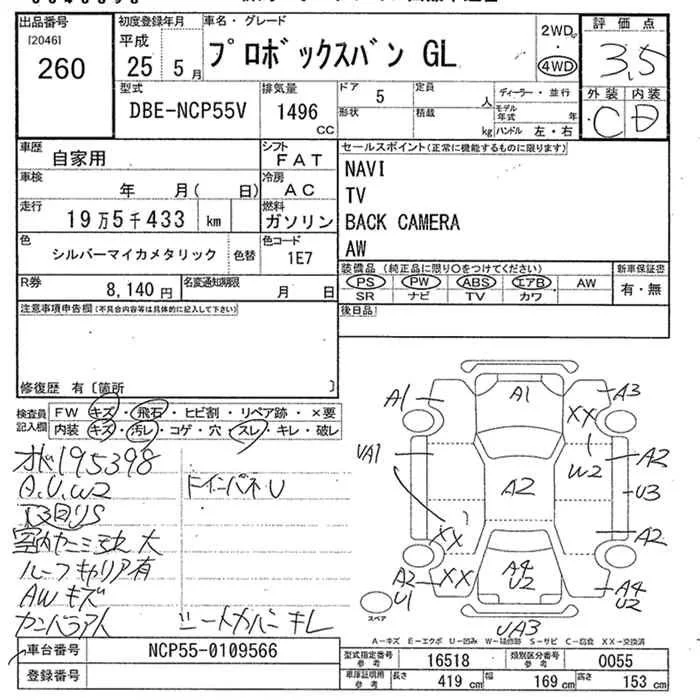 出品番号
[2046]
260
初度登録年月
平成
25 5月
車名・グレード
プロボックスバン GL
2WD
4WD
評価点
3.5
外装 内装
C D
型式
DBE-NCP55V
排気量
1496
CC
ドア 5
形状
定員 人
積載 kg
ディーラー・並行
モデル年式 年
ハンドル 左・右
車歴
自家用
シフト
FAT
車検
年 月( 日)
冷房
AC
走行
19万5千433 km
燃料
ガソリン
色
シルバーマイカメタリック
色替
色コード
1E7
R券
8,140円
名変通知期限
月 日
セールスポイント(正常に機能するものに限ります)
NAVI
TV
BACK CAMERA
AW
装備品 (純正品に限り○をつけてください)
PS PW ABS エアB AW
SR ナビ TV カワ
新車保証書
有・無
後日品
注意事項申告欄(不具合内容等は具体的に記入して下さい)
修復歴 有 [箇所 ]
検査員
記入欄
FW キズ・飛石・ヒビ割・リペア跡・×要
内装 キズ・汚レ・コゲ・穴・スレ・キレ・破レ
195398
A.U.W2
インパネ U
ルーフキャリア有
AWキズ
シートカバー キレ
A1
A1
A3
XX
UA1
W2
A2
A2
U3
XX
A2
A2
U1
XX
A4
U2
A4
U2
スペア
UA3
A-キズ E-エクボ U-凹み W-補修跡 S-サビ C-腐食 XX-交換済
車台番号
NCP55-0109566
登録番号
型式指定番号
参考
16518
類別区分番号
参考
0055
車庫証明用
参考
長さ 419 cm
幅 169 cm
高さ 153 cm